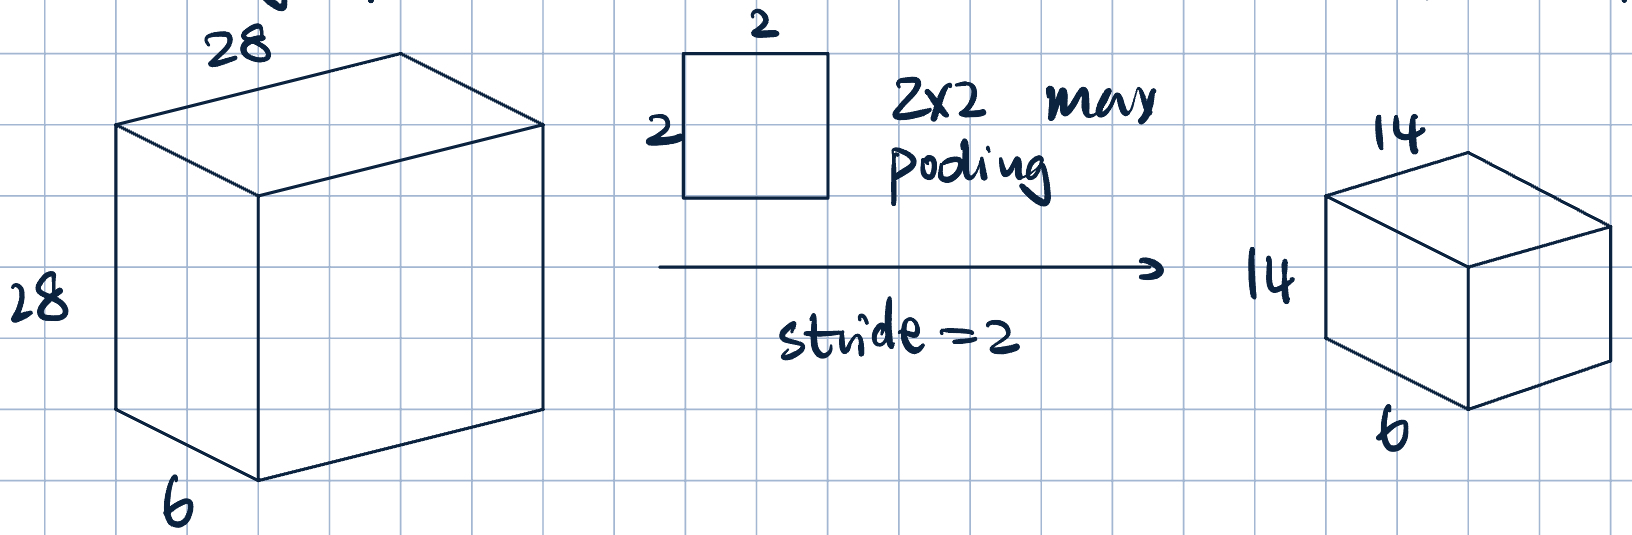 28
28
6
2
2
2x2 max
pooling
stride = 2
14
14
6